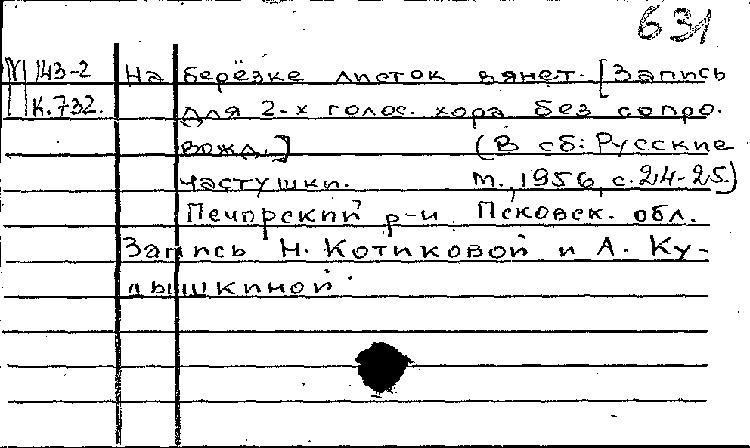 631
М 143-2 На берёзке листок вянет. [Запись
К.732. для 2-х голос. хора без сопро.
вожд.] (В сб: Русские
частушки. М., 1956, с. 24-25.)
Печорский р-н Псковск. обл.
Запись Н. Котиковой и А. Ку-
дышкиной.